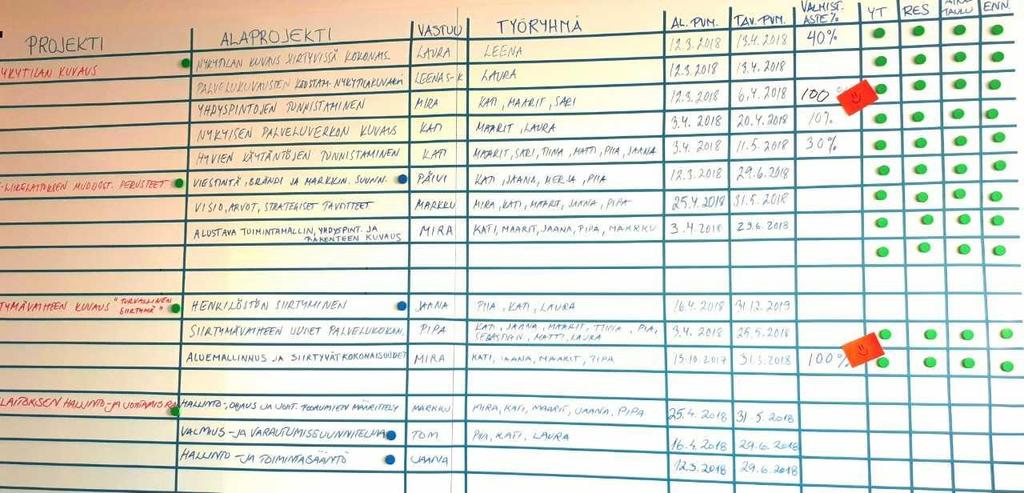 PROJEKTI ALAPROJEKTI VASTUU TYÖRYHMÄ AL.PVM. TAV.PVM. VALMIST. ASTE% YT RES TAULU ENN.
NYKYTILAN KUVAUS SIIRTYVISSÄ KOKONAIS. LAURA LEENA 12.3.2018 13.4.2018 40%
YKYTILAN KUVAUS
PALVELUKUVAUSTEN KOOSTAM. LEENA S-K LAURA 12.3.2018 13.4.2018
YHDYSPINTOJEN TUNNISTAMINEN MIRA KATI, MAARIT, SARI 12.3.2018 6.4.2018 100%
NYKYISEN PALVELUVERKON KUVAUS KATI MAARIT, LAURA 3.4.2018 20.4.2018 10%
HYVIEN KÄYTÄNTÖJEN TUNNISTAMINEN KATI MAARIT, SARI, TIINA, MATTI, PIIA, JAANA 3.4.2018 11.5.2018 30%
-LIIKELAITOKSEN MUODOST. PERUSTEET VIESTINTÄ, BRÄNDI JA MARKKIN. SUUNN. PÄIVI KATI, JAANA, MERJA, PIIA 12.3.2018 29.6.2018
VISIO, ARVOT, STRATEGISET TAVOITTEET MARKKU MIRA, KATI, MAARIT, JAANA, PIPA 25.4.2018 31.5.2018
ALUSTAVA TOIMINTAMALLIN, YHDYSPINT. JA
RAKENTEEN KUVAUS MIRA KATI, MAARIT, JAANA, PIPA, MARKKU 3.4.2018 29.6.2018
TYMÄVAIHEEN KUVAUS "TURVALLINEN
SIIRTYMÄ" HENKILÖSTÖN SIIRTYMINEN JAANA PIIA, KATI, LAURA 16.4.2018 31.12.2019
SIIRTYMÄVAIHEEN UUDET PALVELUKOKON. PIPA KATI, JAANA, MAARIT, TIINA, PIA,
SEBASTIAN, MATTI, LAURA 3.4.2018 25.5.2018
ALUEMALLINNUS JA SIIRTYVÄT KOKONAISUUDET MIRA KATI, JAANA, MAARIT, PIPA 15.10.2017 31.3.2018 100%
LAITOKSEN HALLINTO-JA JOHTAMIS HALLINTO-, OHJAUS JA JOHT. FOORUMIEN MÄÄRITTELY MARKKU MIRA, KATI, MAARIT, JAANA, PIPA 25.4.2018 31.5.2018
VALMIUS-JA VARAUTUMISSUUNNITELMA TOM PIIA, KATI, LAURA 16.4.2018 29.6.2018
HALLINTO-JA TOIMINTASÄÄNTÖ JAANA 12.3.2018 29.6.2018